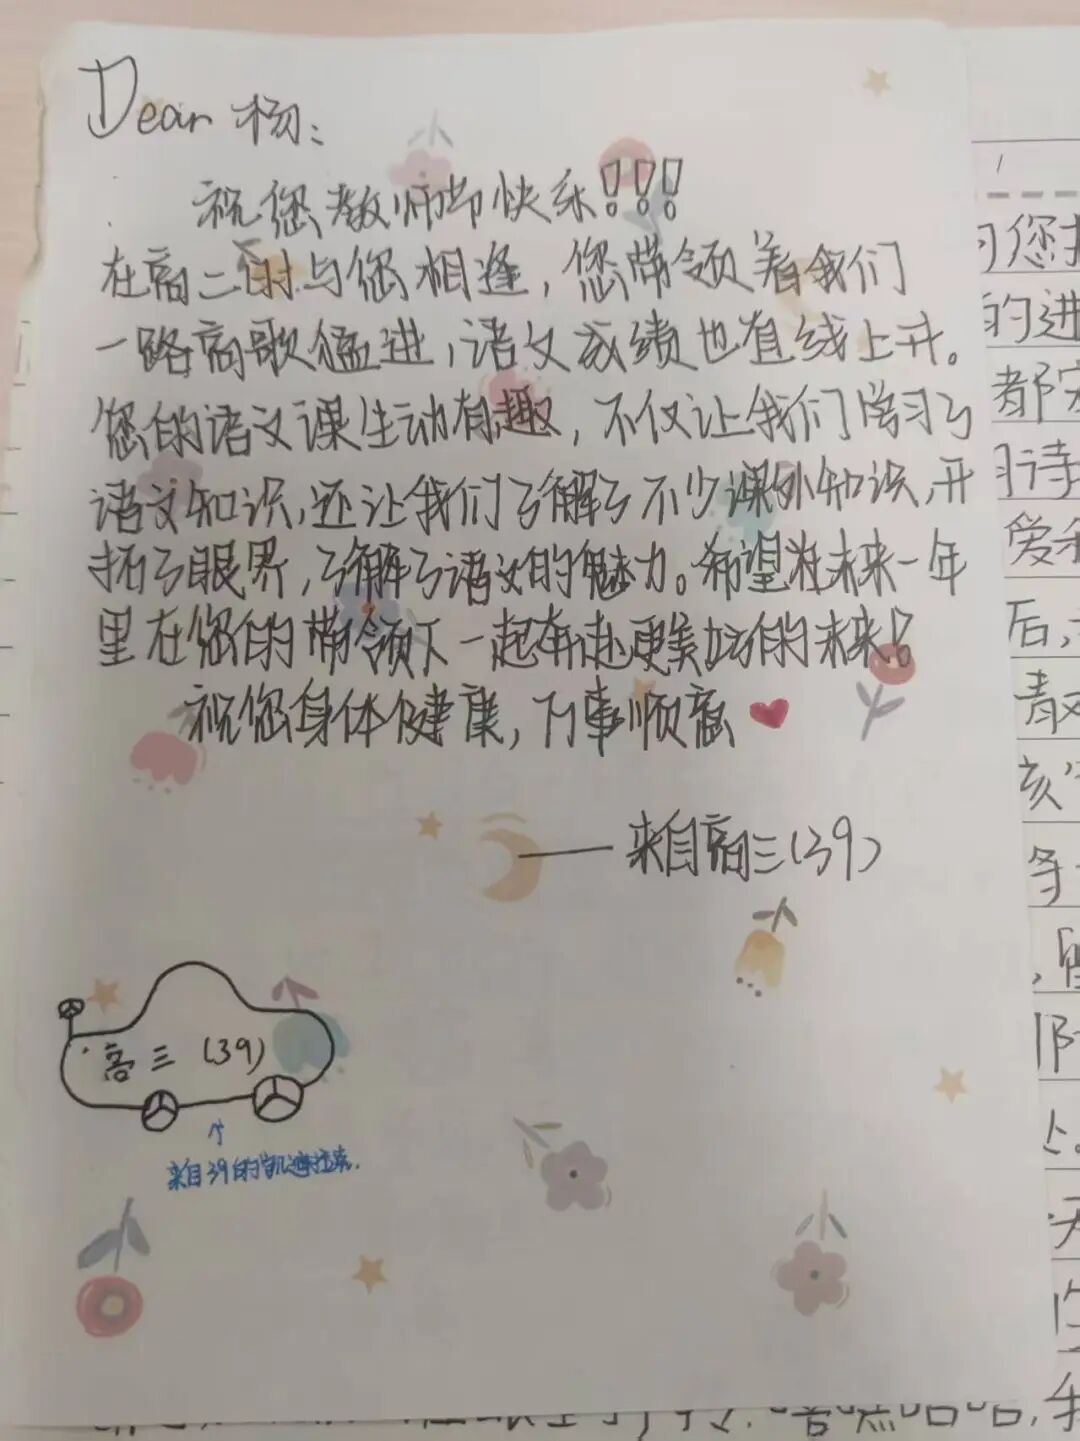 Dear 杨：
祝您教师节快乐！！！
在高二时与您相逢，您带领着我们
一路高歌猛进，语文成绩也直线上升。
您的语文课生动有趣，不仅让我们学习了
语文知识，还让我们了解了不少课外知识，开
拓了眼界，了解了语文的魅力。希望在未来一年
里在您的带领下一起奔赴更美好的未来！
祝您身体健康，万事顺意
来自高三（39）
高三（39）
来自39的凯迪拉克.
习您
的进
都
习诗
爱
后，
青
亥
等